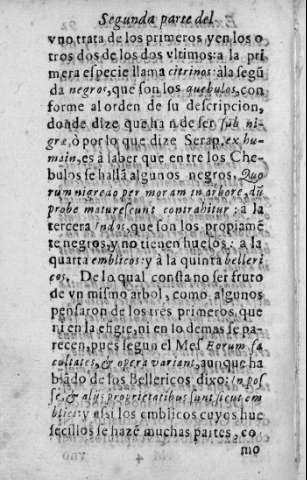 Segunda parte del
vno trata de los primeros y en los o
tros dos de los dos vltimos: a la pri
mera especie llama citrinos: à la segũ
da negros, que son los quebulos, con
forme al orden de su descripcion,
donde dize que han de ser sub ni-
græ, ò por lo que dize Serap. ex hu-
main, es à saber que entre los Che-
bulos se hallã algunos negros, Quo
rum nigredo per moram in arbore, dũ
probe maturescunt contrahitur: à la
tercera Indos, que son los propiamẽ
te negros, y no tienen huesos: a la
quarta emblicos: y à la quinta belleri
cos, De lo qual consta no ser fruto
de vn mismo arbol, como algunos
pensaron de los tres primeros, que
ni en la efigie, ni en lo demas se pa-
recen, pues segun el Mes. Eorum fa
cultates, & opera variant, aunque ha
blãdo de los Bellericos dixo: In pos
se, & alijs proprietatibus sunt sicut em
blici: y assi los emblicos cuyos hue
secillos se hazẽ muchas partes, co-
mo